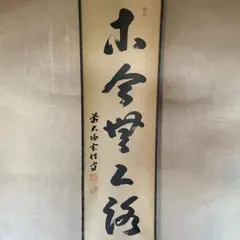 古今無二路
前大徳